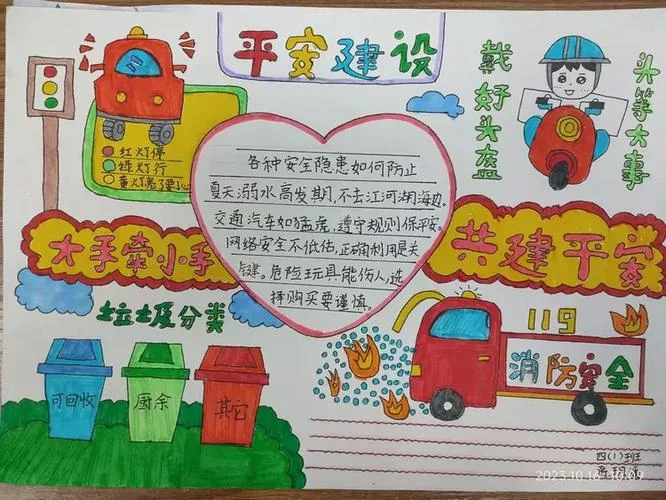 平安建设
戴好头盔
头等大事
红灯停
绿灯行
黄灯亮了要小心
各种安全隐患如何防止
夏天溺水高发期,不去江河湖海边。
交通汽车如猛虎,遵守规则保平安。
网络安全不低估,正确利用是关
键。危险玩具能伤人,选
择购买要谨慎。
大手牵小手
共建平安
垃圾分类
可回收
厨余
其它
119
消防安全
四(1)班
2023.10.16 10:09